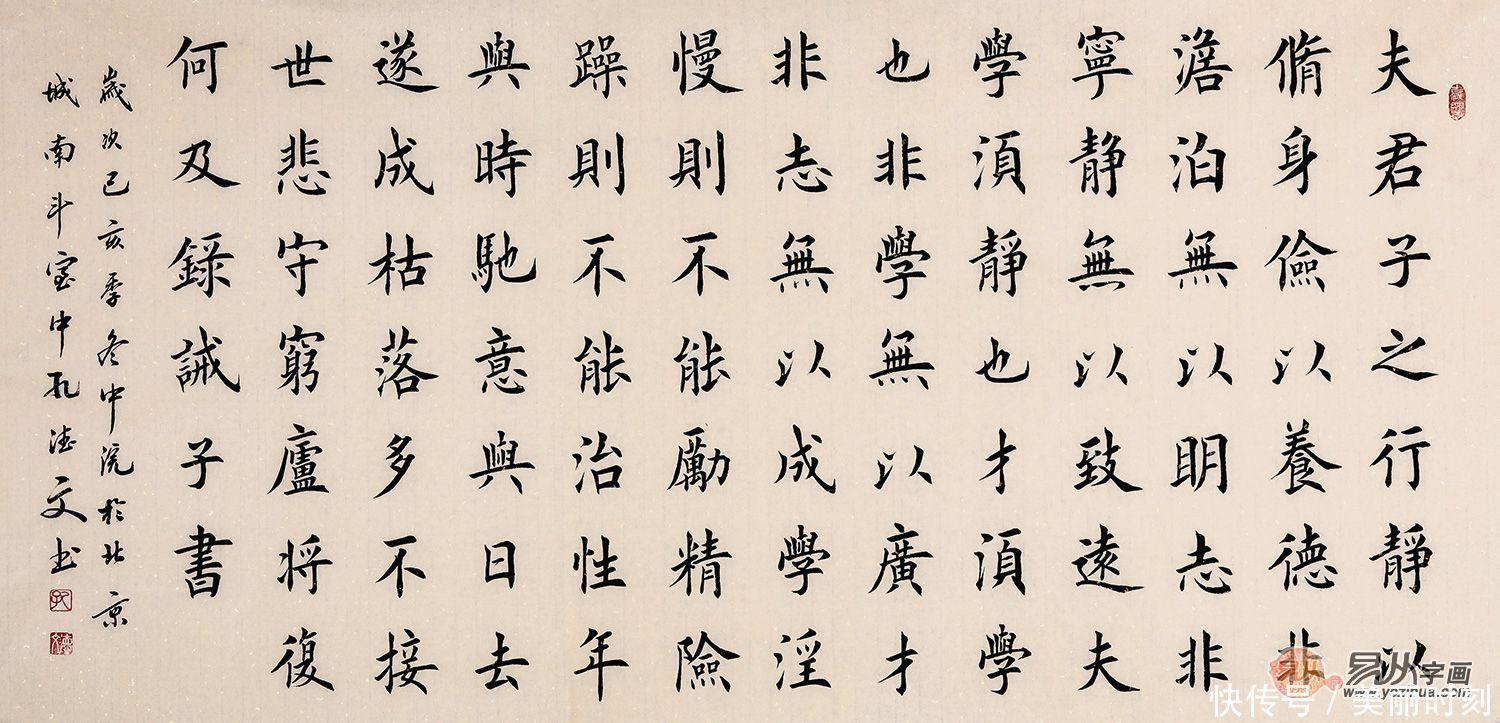 夫君子之行靜以
脩身儉以養德非
澹泊無以明志非
寧靜無以致遠夫
學須靜也才須學
也非學無以廣才
非志無以成學淫
慢則不能勵精險
躁則不能治性年
與時馳意與日去
遂成枯落多不接
世悲守窮廬將復
何及錄誡子書
歲次己亥季冬中浣於北京
城南斗室中孔德文书
易从字画
www.yczihua.com
快传号/美丽时刻